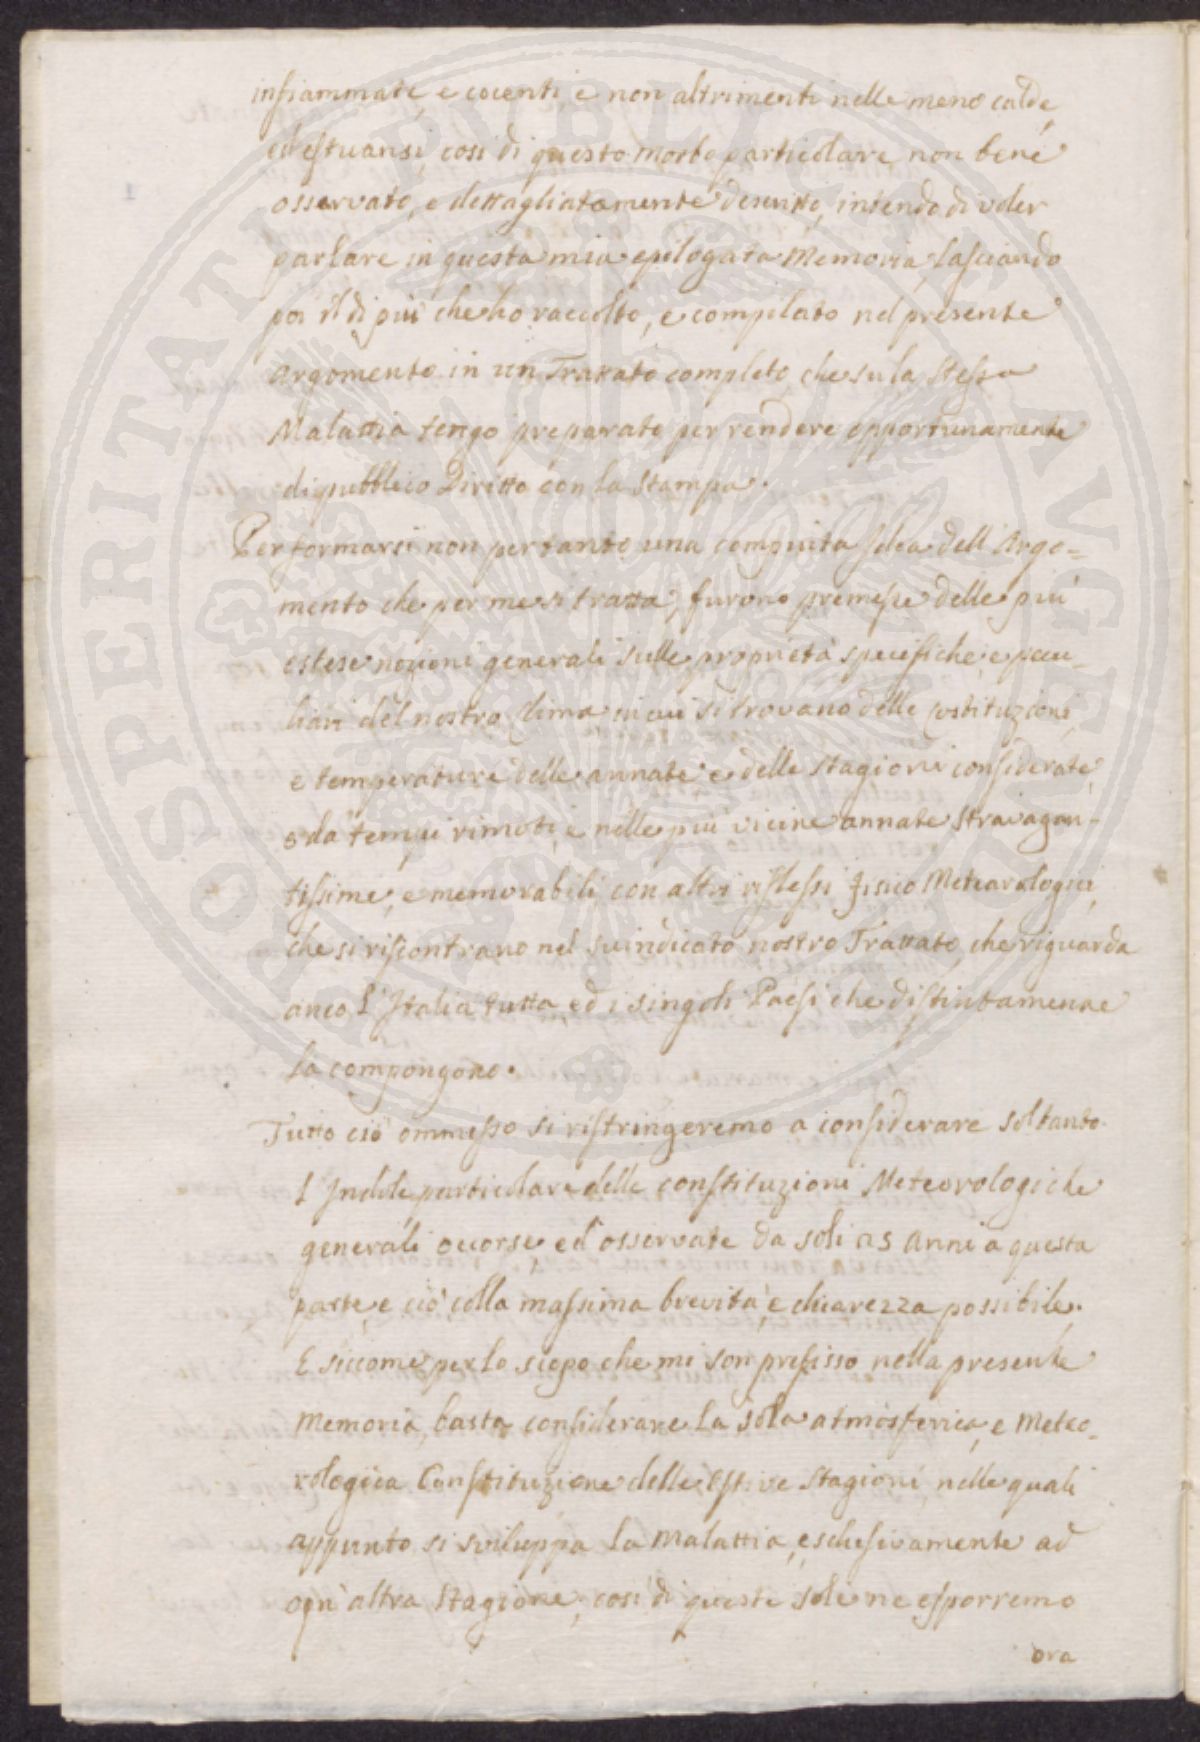 infiammate, e cocenti, e non altrimenti nelle meno calde,
ed estuansi, così di questo morbo particolare non bene
osservato, e dettagliatamente descritto, intendo di voler
parlare in questa mia epilogata Memoria, lasciando
poi il di più che ho raccolto, e compilato nel presente
Argomento in un Trattato completo, che su la stessa
Malattia tengo preparato per rendere opportunamente
di pubblico Diritto con la stampa.
Per formarsi non pertanto una compiuta Idea dell'Argo=
mento che per me si tratta, furono premesse delle più
estese nozioni generali sulle proprietà specifiche, e pecu-
liari del nostro Clima in cui si trovano delle Costituzioni,
e temperature delle annate e delle stagioni considerate,
e da tempi rimoti, e nelle più vicine annate stravagan-
tissime, e memorabili con altri riflessi fisico Meteorologici,
che si riscontrano nel suindicato nostro Trattato, che riguarda
anco l'Italia tutta, ed i singoli Paesi che distintamente
la compongono.
Tutto ciò ommesso si ristringeremo a considerare soltanto
l'Indole particolare delle constituzioni Meteorologiche
generali occorse ed osservate da soli 25 anni a questa
parte, e ciò colla massima brevità, e chiarezza possibile.
E siccome per lo scopo che mi son prefisso nella presente
Memoria, basta considerare la sola atmosferica, e Meteo-
rologica Constituzione delle estive stagioni, nelle quali
appunto si sviluppa la Malattia, esclusivamente ad
ogn'altra Stagione, così di queste sole ne esporremo
ora
PROSPERITATI PUBLICAE AUGENDAE